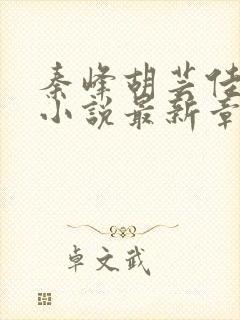 秦峰胡芸佳
小說最新章
卓文武